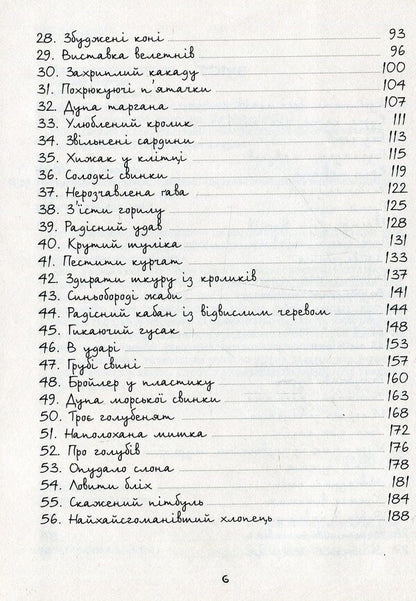 28. Збуджені коні 93
29. Виставка велетнів 96
30. Захриплий какаду 100
31. Похрюкуючі п'ятачки 104
32. Дупа таргана 107
33. Улюблений кролик 111
34. Звільнені сардини 113
35. Хижак у клітці 115
36. Солодкі свинки 119
37. Нерозчавлена ґава 122
38. З'їсти горилу 125
39. Радісний удав 128
40. Крутий туліка 131
41. Пестити курчат 133
42. Здирати шкуру із кроликів 137
43. Синьобороді жаби 141
44. Радісний кабан із відвислим черевом 144
45. Гикаючий гусак 148
46. В ударі 153
47. Грубі свині 157
48. Бройлер у пластику 160
49. Дупа морської свинки 163
50. Троє голубенят 168
51. Наполохана мишка 172
52. Про голубів 176
53. Опудало слона 178
54. Ловити бліх 181
55. Скажений пітбуль 184
56. Найхайсгоманівтий хлопець 188
6